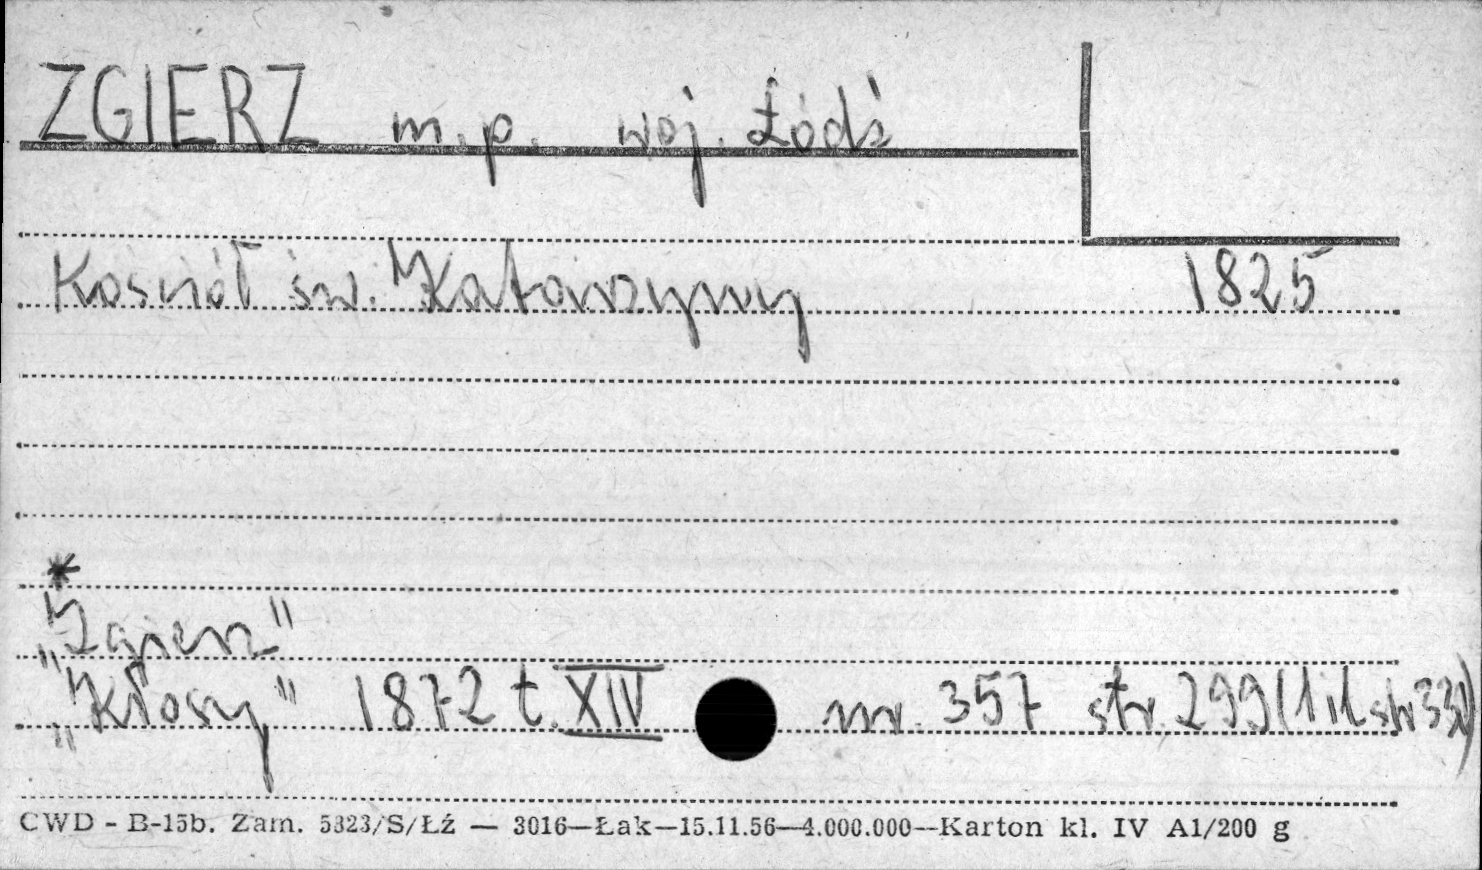 ZGIERZ m.p. woj. Łódź
Kościół św. Katarzyny 1825
*
„Zgierz"
„Kłosy" 1872 t. XIV nr. 357 str. 299 (1 il. str
CWD - B-15b. Zam. 5323/S/Łź — 3016—Łak—15.11.56—4.000.000—Karton kl. IV A1/200 g